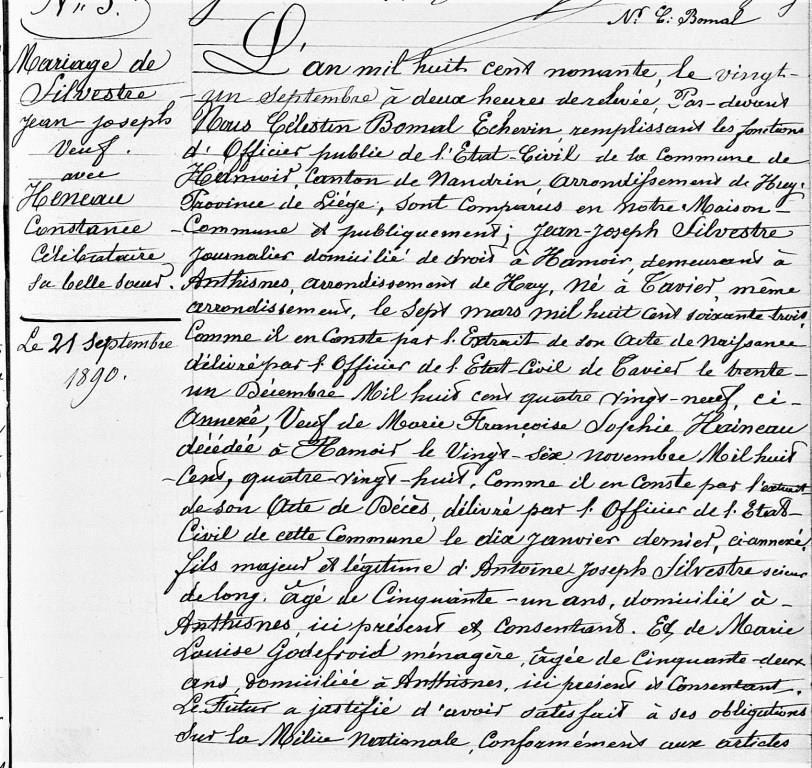 N° 5.
N. C. Bomal
Mariage de
Silvestre
Jean-Joseph
Veuf.
avec
Heneau
Constance
Célibataire
Sa belle soeur.
Le 21 Septembre
1890.
L'an mil huit cent nonante, le vingt-
un Septembre à deux heures de relevée, Par-devant
Nous Célestin Bomal Echevin, remplissant les fonctions
d'Officier public de l'Etat-Civil de la Commune de
Hamoir, Canton de Nandrin, arrondissement de Huy,
Province de Liége, sont comparus en notre Maison-
Commune et publiquement; Jean-Joseph Silvestre
journalier domicilié de droit à Hamoir, demeurant à
Anthisnes, arrondissement de Huy, Né à Tavier, même
arrondissement, le Sept mars mil huit cent soixante trois
Comme il en Conste par l'Extrait de son Acte de Naissance
délivré par l'Officier de l'Etat-Civil de Tavier le trente-
un Décembre Mil huit cent quatre vingt-neuf, ci-
Annexé, Veuf de Marie Françoise Sophie Haineau
décédée à Hamoir le Vingt-six novembre Mil huit
-Cent, quatre-vingt-huit, Comme il en Conste par l'extrait
de son Acte de Décès, délivré par l'Officier de l'Etat-
Civil de cette Commune le dix Janvier dernier, ci-annexé,
fils majeur et légitime d'Antoine Joseph Silvestre scieur
de long. Agé de Cinquante-un ans, domicilié à-
Anthisnes, ici présent et Consentant. Et de Marie
Louise Godefroid ménagère, âgée de Cinquante-deux
ans, domiciliée à Anthisnes, ici présent et Consentant.
Le Futur a justifié d'avoir satisfait à ses obligations
Sur la Milice Nationale, Conformément aux articles